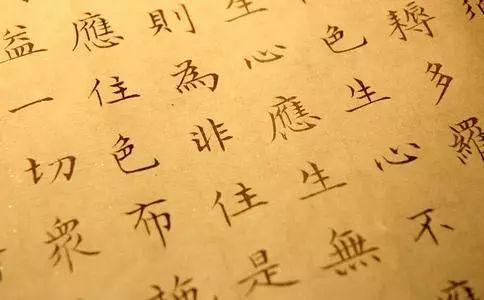 耨多羅
色生心不應
生心應生無
則為非住是
應住色布施
益一切眾